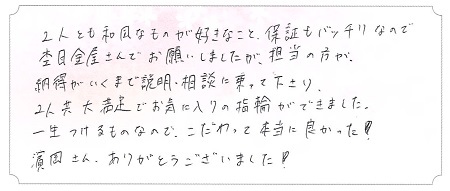 2人とも和風なものが好きなこと、保証もバッチリなので
杢目金屋さんでお願いしましたが、担当の方が、
納得がいくまで説明・相談に乗って下さり、
2人共大満足でお気に入りの指輪ができました。
一生つけるものなので、こだわって本当に良かった!
濱田さん、ありがとうございました!